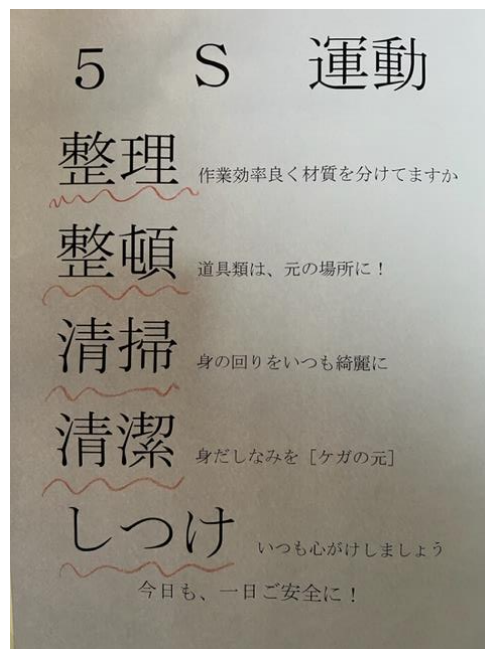 ５ Ｓ 運動
整理 作業効率良く材質を分けてますか
整頓 道具類は、元の場所に！
清掃 身の回りをいつも綺麗に
清潔 身だしなみを［ケガの元］
しつけ いつも心がけしましょう
今日も、一日ご安全に！